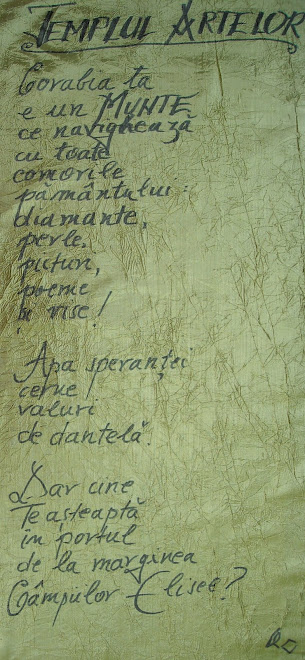 TEMPLUL ARTELOR
Corabia ta
e un MUNTE
ce navighează
cu toate
comorile
pământului:
diamante,
perle,
picturi,
poeme
și vise!
Apa speranței
cerne
valuri
de dantelă.
Dar cine
Te așteaptă
în portul
de la marginea
Câmpulor Elisee?